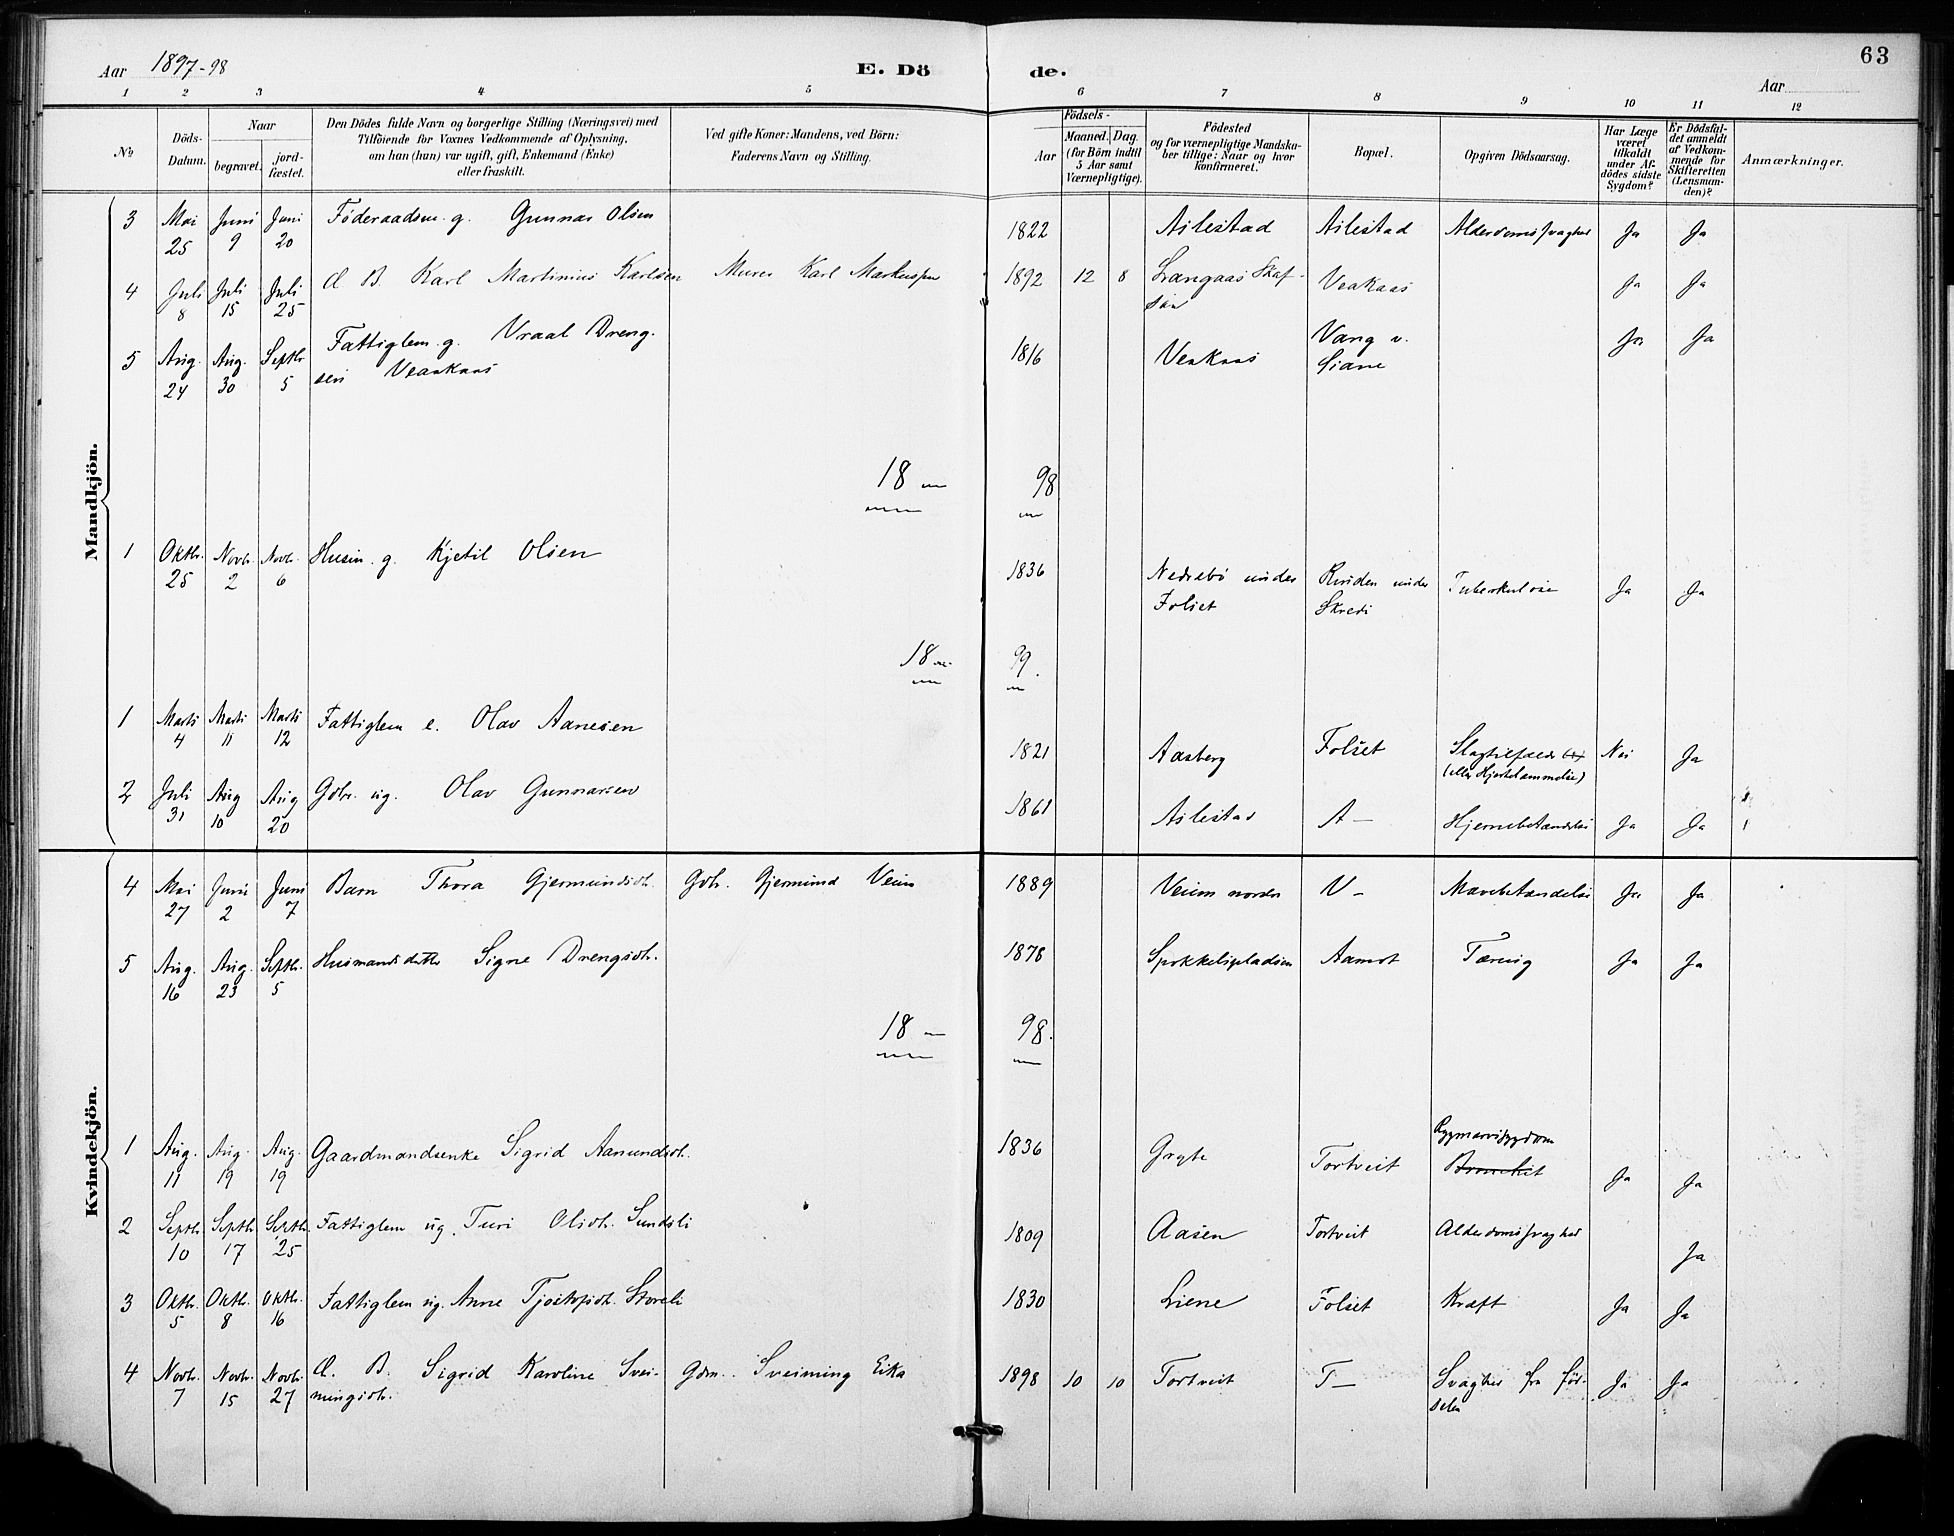 63
Aar 1897-98
E. Dö
de.
Aar
1 2 3 4 5 6 7 8 9 10 11 12
№
Döds-
Datum.
Naar
begravet.
jord-
fæstet.
Den Dödes fulde Navn og borgerlige Stilling (Næringsvei) med
Tilföiende for Voxnes Vedkommende af Oplysning,
om han (hun) var ugift, gift, Enkemand (Enke)
eller fraskilt.
Ved gifte Koner: Mandens, ved Börn:
Faderens Navn og Stilling.
Födsels-
Aar
Maaned.
Dag.
(for Börn indtil
5 Aar samt
Værnepligtige).
Födested
og for værnepligtige Mandska-
ber tillige: Naar og hvor
konfirmeret.
Bopæl.
Opgiven Dödsaarsag.
Har Læge
været
tilkaldt
under Af-
dödes sidste
Sygdom?
Er Dödsfal-
det anmeldt
af Vedkom-
mende for
Skifteretten
(Lensman-
den)?
Anmærkninger.
Mandkjön.
3 Mai 25 Juni 9 Juni 20 Föderaadsm. g. Gunnar Olsen 1822 Ailestad Ailestad Alderdomssvaghed Ja Ja
4 Juli 8 Juli 15 Juli 25 Æ B. Karl Martinius Karlsen Murer Karl Markussen 1892 12 8 Langaas Skaf-
Veakaas Ja Ja
5 Aug. 24 Aug. 30 Septbr 5 Fattiglem. g. Vraal Dreng-
sen Veaakaas 1816 Veakaas Vang u.
Liane Ja Ja
18 98
1 Oktbr. 25 Novbr. 2 Novbr. 6 Husm. g. Kjetil Olsen 1836 Nedrebö under
Folset Rinden under
Skredi Tuberkulose Ja Ja
18 99.
1 Marts 4 Marts 11 Marts 12 Fattiglem e. Olav Aanesen 1821 Aasberg Folset Slagtilfælde
(eller Hjertelammelse) Nei Ja
2 Juli 31 Aug 10 Aug 20 Gdbr. ug. Olav Gunnarsen 1861 Ailestad A— Hjernebetændelse Ja Ja
Kvindekjön.
4 Mai 27 Juni 2 Juni 7 Barn Thora Gjermundsdtr. Gdbr. Gjermund Veum 1889 Veum nordre V— Mavebetændelse Ja Ja
5 Aug. 16 Aug. 23 Septbr. 5 Husmandsdatter Signe Drengsdtr. 1878 Spokkelipladsen Aamot Tæring Ja Ja
18— 98.
1 Aug. 11 Aug. 19 Aug. 19 Gaardmandsenke Sigrid Aanundsdtr. 1836 Gryte Tortveit Rygmarvsygdom
Bronchit Ja Ja
2 Septbr. 10 Septbr 17 Septbr. 25 Fattiglem ug. Turi Olsdtr. Sundsli 1809 Aasen Tortveit Alderdomssvaghed Ja
3 Oktbr. 5 Oktbr. 8 Oktbr. 16 Fattiglem ug. Anne Tjostofsdtr. Storeli 1830 Liene Folset Kræft Ja Ja
4 Novbr. 7 Novbr. 15 Novbr. 27 Æ. B. Sigrid Karoline Svei-
ningsdtr. Gdm. Sveinung Eika 1898 10 10 Tortveit T— Svaghed fra Föd-
selen Ja Ja